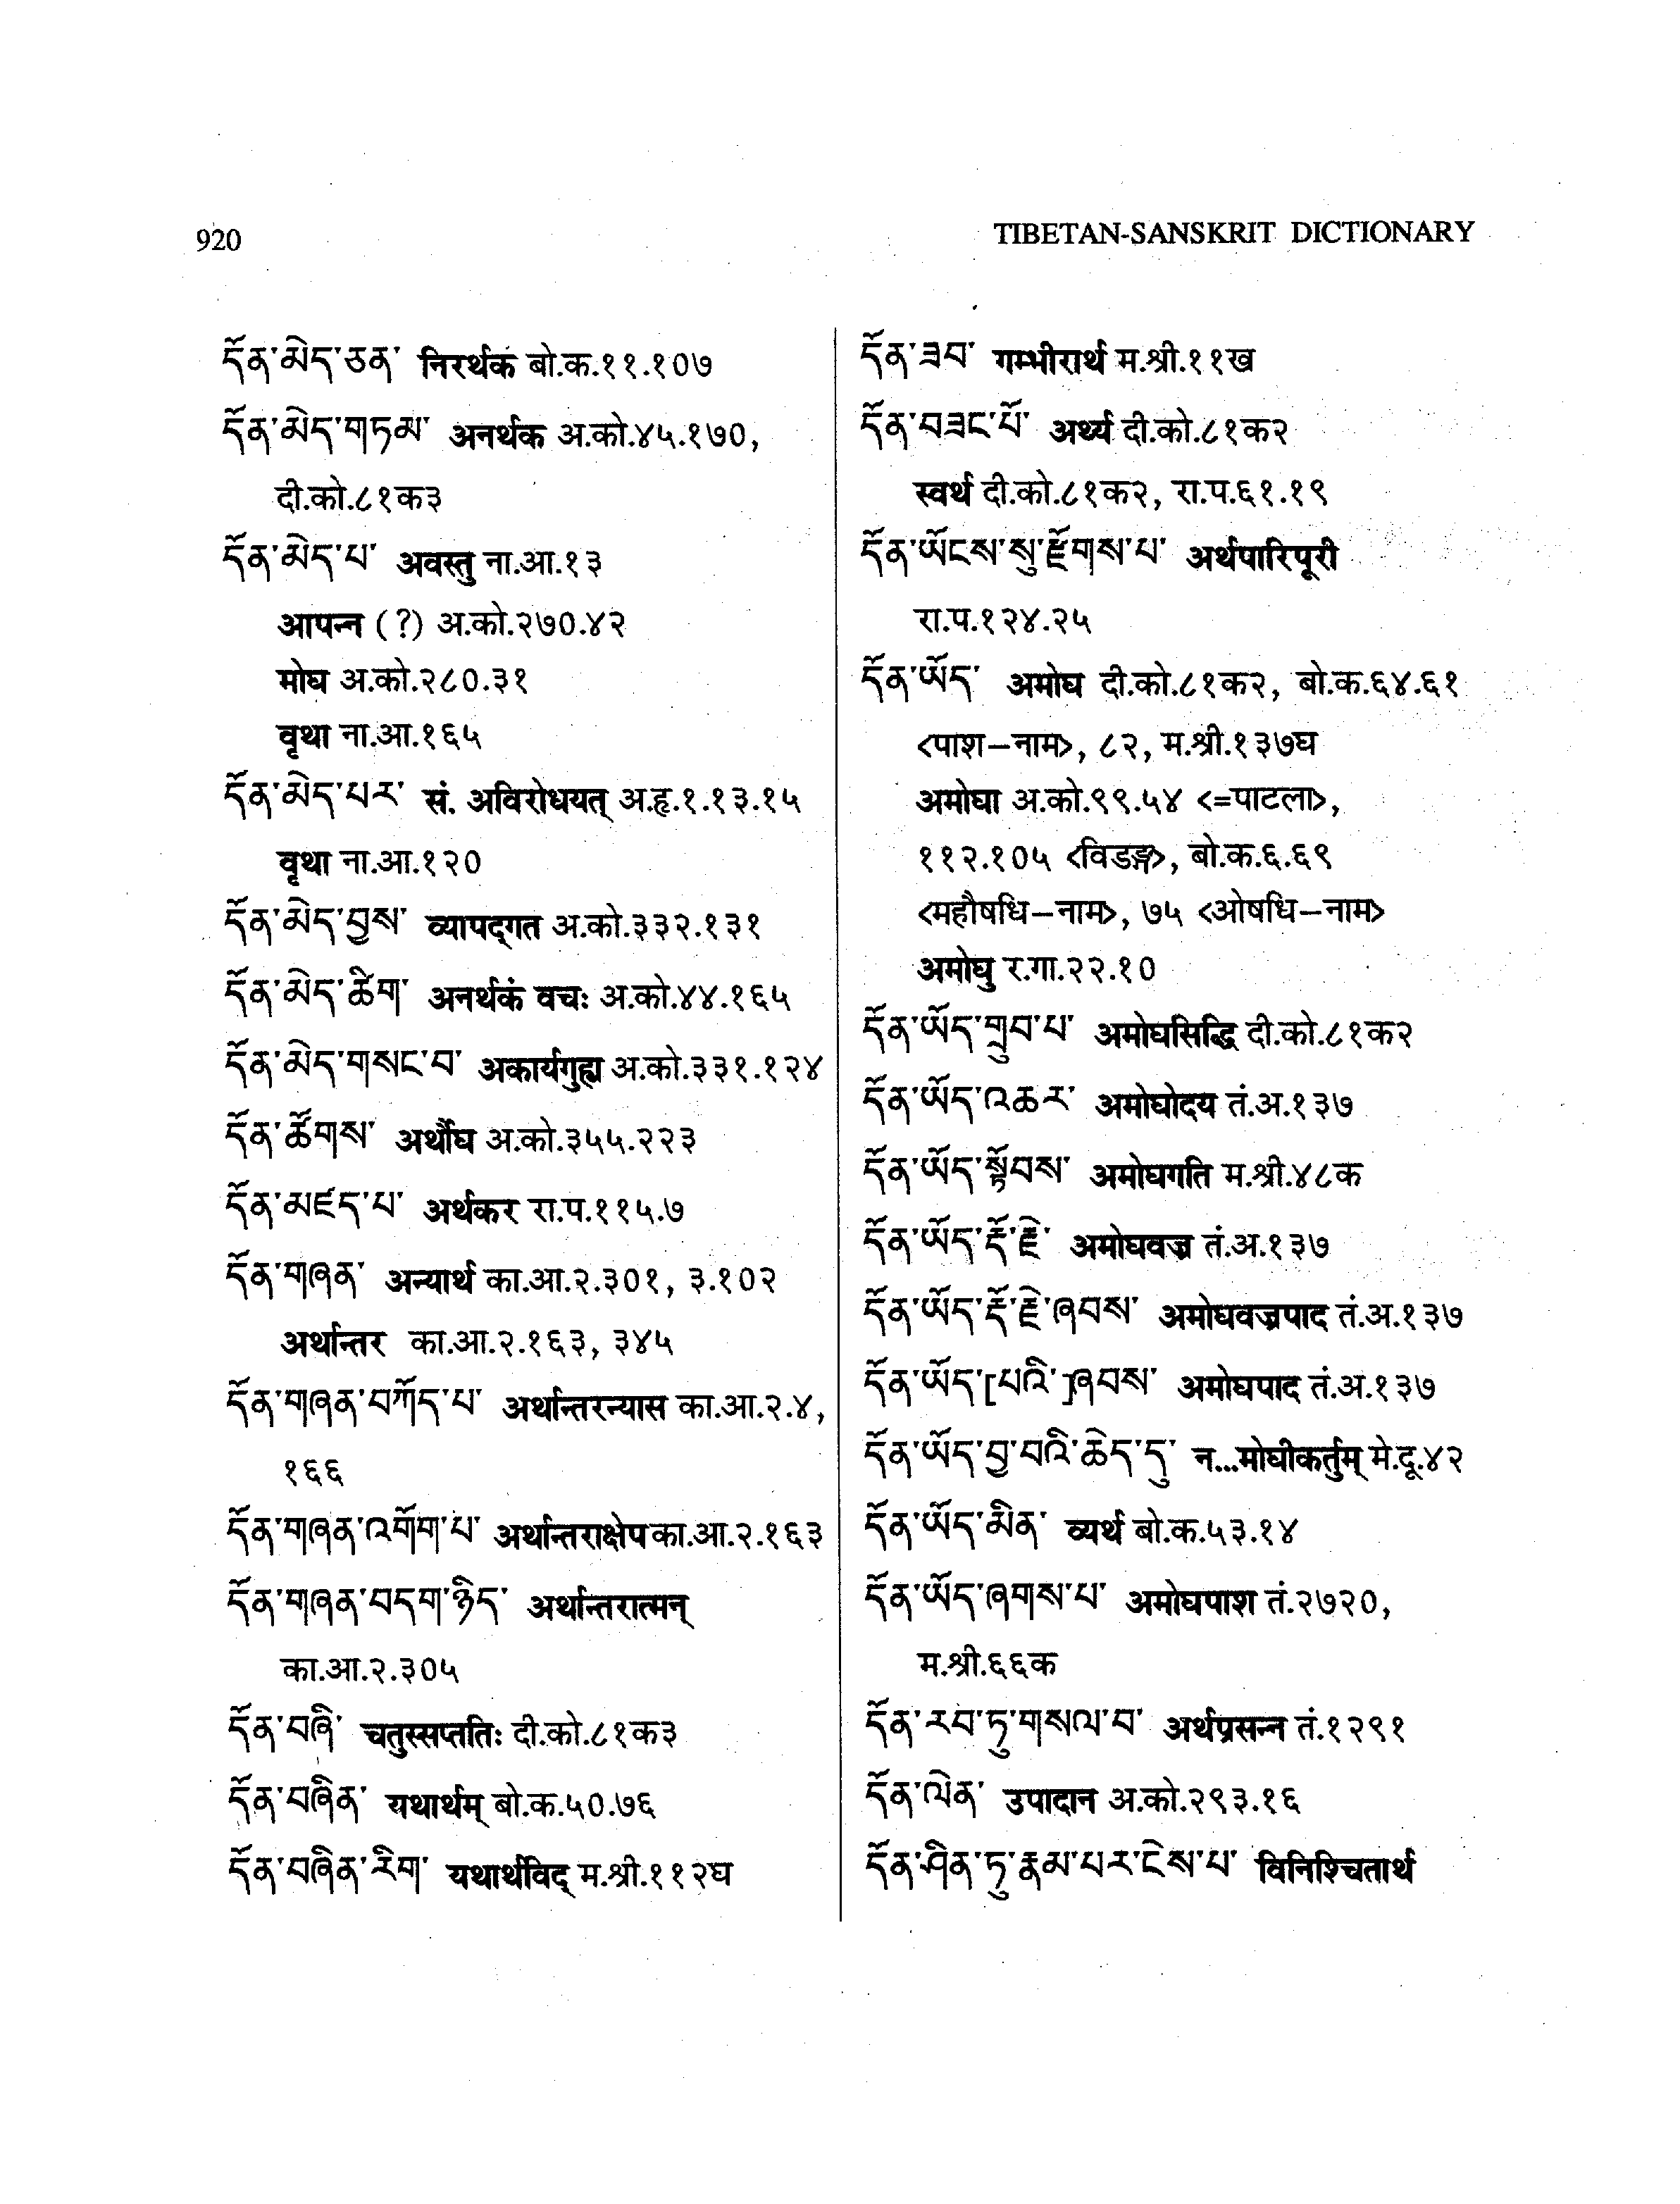 920
TIBETAN-SANSKRIT DICTIONARY
དོན་མེད་ཅན་ निरर्थक बो.क.११.१०७
དོན་མེད་གཏམ་ अनर्थक अ.को.४५.१७०,
दी.को.८१क३
དོན་མེད་པ་ अवस्तु ना.आ.१३
आपन्न (?) अ.को.२७०.४२
मोघ अ.को.२८०.३१
वृथा ना.आ.१६५
དོན་མེད་པར་ सं. अविरोधयत् अ.हृ.१.१३.१५
वृथा ना.आ.१२०
དོན་མེད་བྱས་ व्यापद्गत अ.को.३३२.१३१
དོན་མེད་ཚིག་ अनर्थकं वचः अ.को.४४.१६५
དོན་མེད་གསང་བ་ अकार्यगुह्य अ.को.३३१.१२४
དོན་ཚོགས་ अर्थौघ अ.को.३५५.२२३
དོན་མཛད་པ་ अर्थकर रा.प.११५.७
དོན་གཞན་ अन्यार्थ का.आ.२.३०१, ३.१०२
अर्थान्तर का.आ.२.१६३, ३४५
དོན་གཞན་བཀོད་པ་ अर्थान्तरन्यास का.आ.२.४,
१६६
དོན་གཞན་འགོག་པ་ अर्थान्तराक्षेप का.आ.२.१६३
དོན་གཞན་བདག་ཉིད་ अर्थान्तरात्मन्
का.आ.२.३०५
དོན་བཞི་ चतुस्सप्ततिः दी.को.८१क३
དོན་བཞིན་ यथार्थम् बो.क.५०.७६
དོན་བཞིན་རིག་ यथार्थविद् म.श्री.११२घ
དོན་ཟབ་ गम्भीरार्थ म.श्री.११ख
དོན་བཟང་པོ་ अर्थ्य दी.को.८१क२
स्वर्थ दी.को.८१क२, रा.प.६१.१९
དོན་ཡོངས་སུ་རྫོགས་པ་ अर्थपारिपूरी
रा.प.१२४.२५
དོན་ཡོད་ अमोघ दी.को.८१क२, बो.क.६४.६१
<पाश-नाम>, ८२, म.श्री.१३७घ
अमोघा अ.को.९९.५४ <=पाटला>,
११२.१०५ <विडङ्ग>, बो.क.६.६९
<महौषधि-नाम>, ७५ <ओषधि-नाम>
अमोघु र.गा.२२.१०
དོན་ཡོད་གྲུབ་པ་ अमोघसिद्धि दी.को.८१क२
དོན་ཡོད་འཆར་ अमोघोदय तं.अ.१३७
དོན་ཡོད་སྟོབས་ अमोघगति म.श्री.४८क
དོན་ཡོད་རྡོ་རྗེ་ अमोघवज्र तं.अ.१३७
དོན་ཡོད་རྡོ་རྗེ་ཞབས་ अमोघवज्रपाद तं.अ.१३७
དོན་ཡོད་[པའི་]ཞབས་ अमोघपाद तं.अ.१३७
དོན་ཡོད་བྱ་བའི་ཆེད་དུ་ न...मोघीकर्तुम् मे.दू.४२
དོན་ཡོད་མིན་ व्यर्थ बो.क.५३.१४
དོན་ཡོད་ཞགས་པ་ अमोघपाश तं.२७२०,
म.श्री.६६क
དོན་རབ་ཏུ་གསལ་བ་ अर्थप्रसन्न तं.१२९१
དོན་ལེན་ उपादान अ.को.२९३.१६
དོན་ཤིན་ཏུ་རྣམ་པར་ངེས་པ་ विनिश्चितार्थ